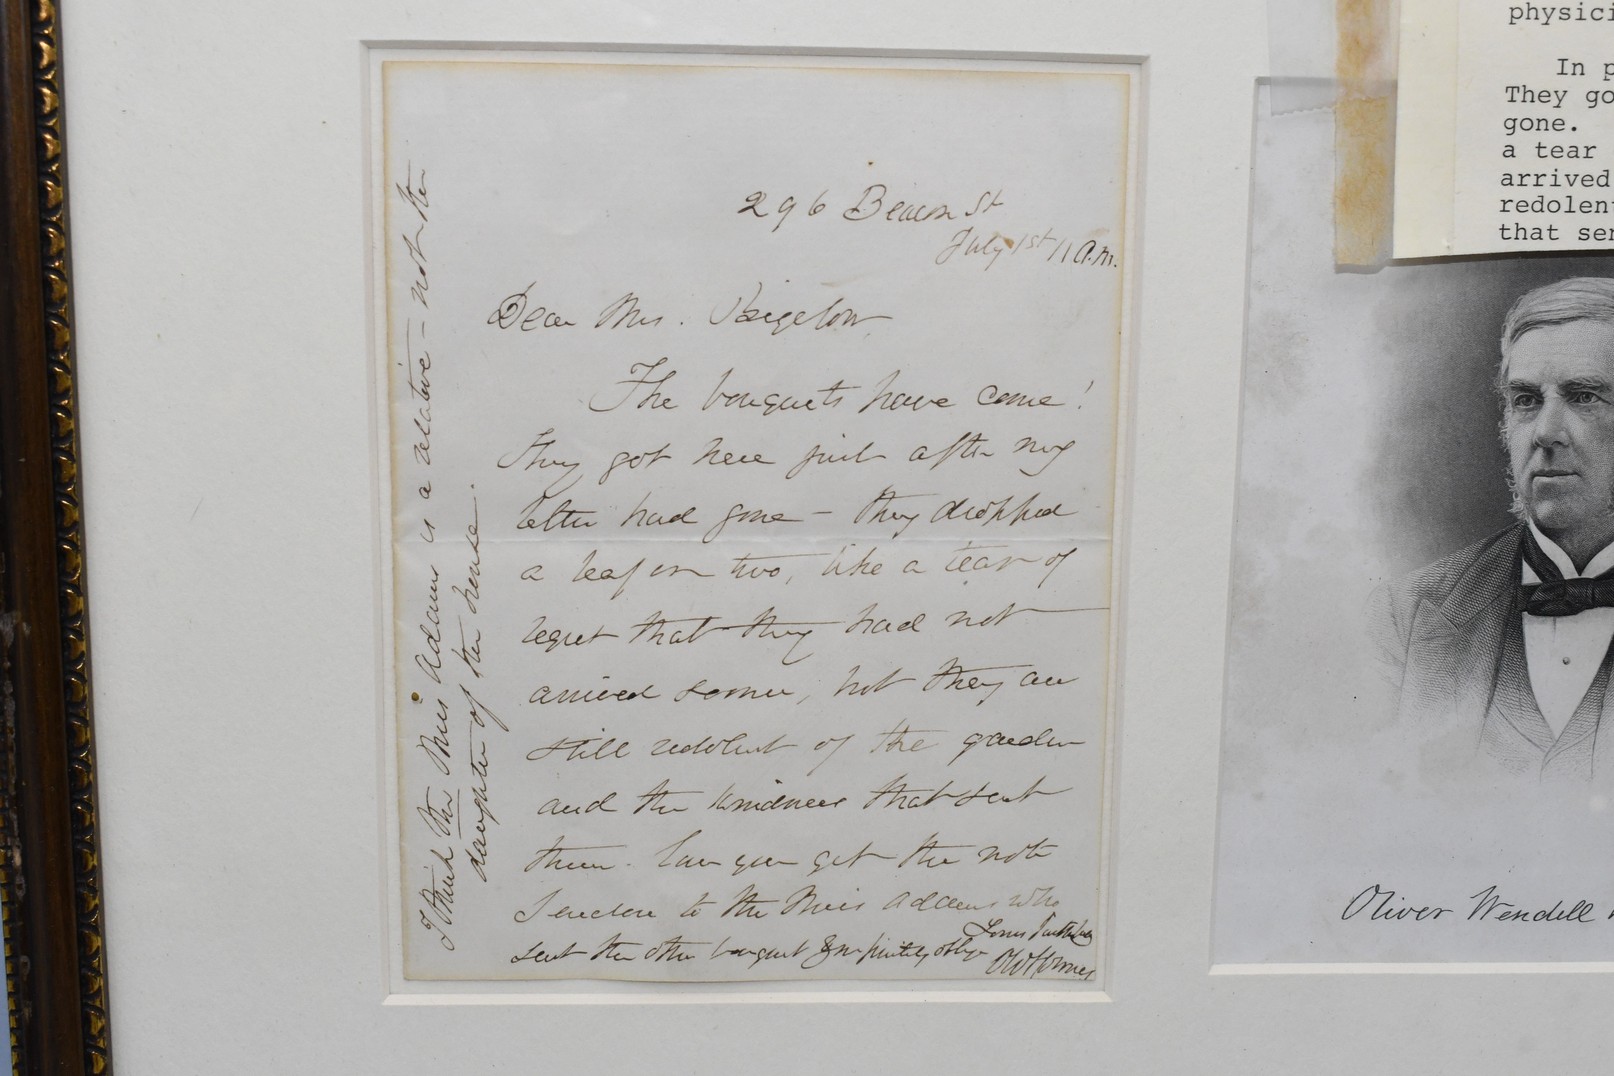 296 Beacon St
July 1st 11 A.M.
Dear Mrs. Bigelow
The bouquets have come!
They got here just after my
letter had gone – they dropped
a leaf or two, like a tear of
regret that they had not
arrived sooner, but they are
still redolent of the garden
and the kindness that sent
them. Can you get the note
I enclose to the Miss Adams who
sent the other bouquet & infinitely oblige
Yours faithfully
O W Holmes
I think this Miss Adams is a relative – not the
daughter of the house.
physici
In p
They go
gone.
a tear
arrived
redolent
that sen
Oliver Wendell